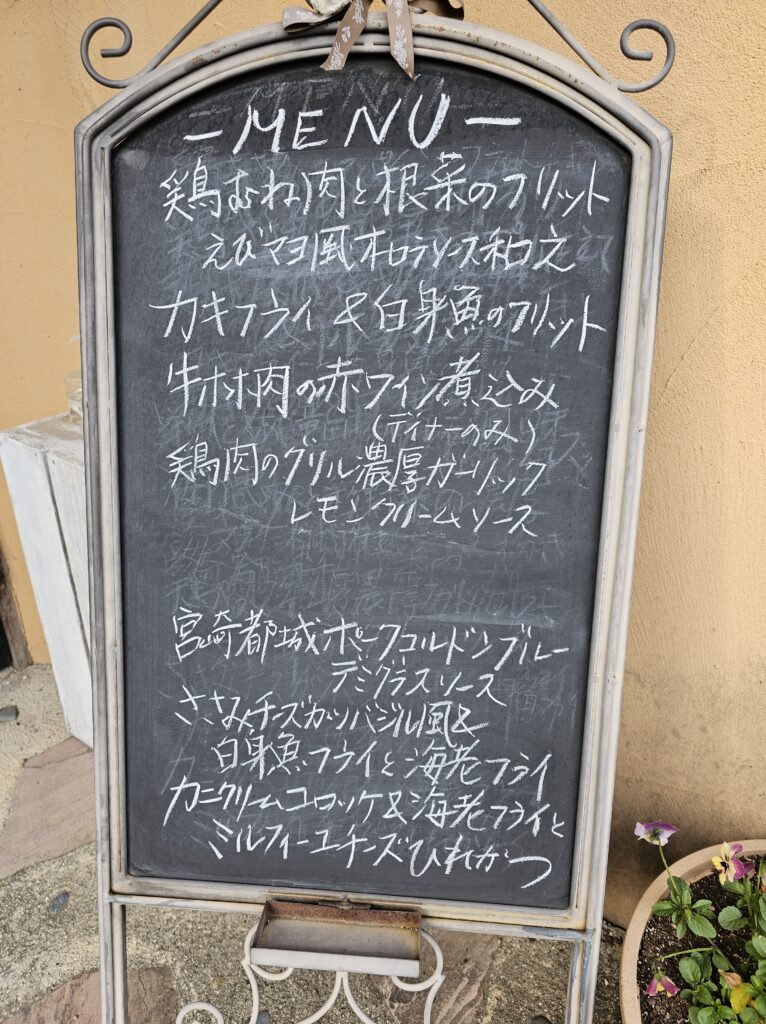 －MENU－
鶏むね肉と根菜のフリット
えびマヨ風オロラソース和え
カキフライ & 白身魚のフリット
牛ホホ肉の赤ワイン煮込み
(ディナーのみ)
鶏肉のグリル濃厚ガーリック
レモンクリームソース
宮崎都城ポークコルドンブルー
デミグラスソース
ささみチーズカツバジル風&
白身魚フライと海老フライ
カニクリームコロッケ&海老フライと
ミルフィーユチーズひれかつ